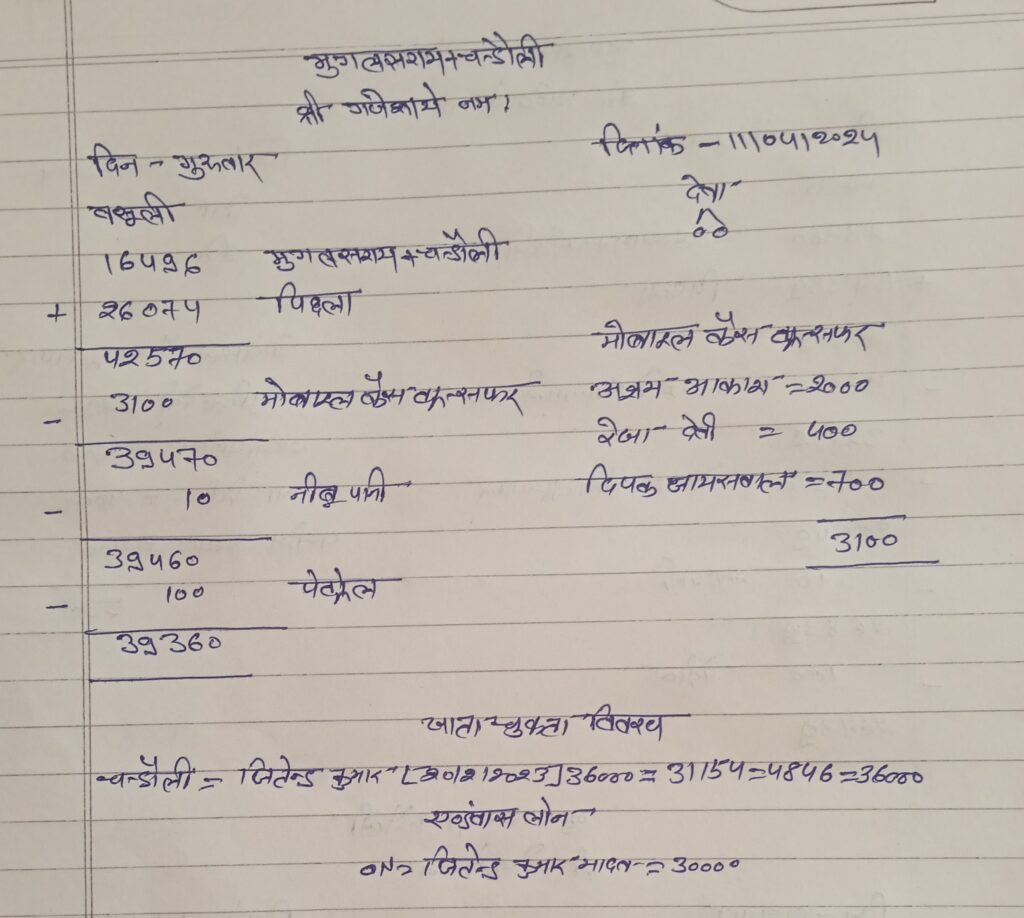 मुगलसराय+चन्दौली
श्री गणेशाये नमः
दिन - गुरुवार
दिनांक - 11/04/2024
वसूली
देवा
00
16496 मुगलसराय+चन्दौली
+ 26074 पिछला
42570
मोबाइल कैस ट्रान्सफर
- 3100 मोबाइल कैस ट्रान्सफर
आकाश = 2000
39470
देवी = 400
- 10 नीबू पानी
दिपक जायसवाल = 700
39460
3100
- 100 पेट्रोल
39360
खाता चुकता विवरण
चन्दौली = जितेन्द्र कुमार [20/2/2023] 36000 = 31154 = 4846 = 36000
एडवांस लोन
जितेन्द्र कुमार = 30000